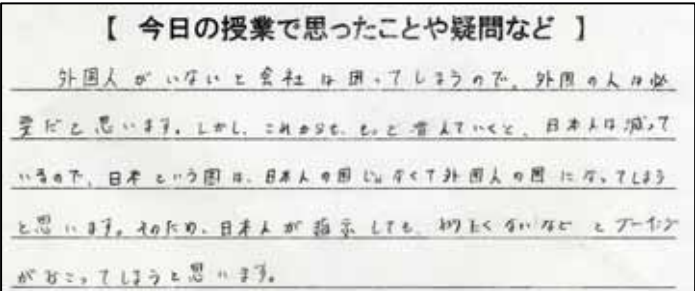 【 今日の授業で思ったことや疑問など 】
外国人がいないと会社は困ってしまうので、外国の人は必
要だと思います。しかし、これからも、もっと増えていくと、日本人は減って
いるので、日本という国は、日本人の国じゃなくて外国人の国になってしまう
と思います。そのため、日本人が指示しても、やりたくないなどとブーイング
がおこってしまうと思います。